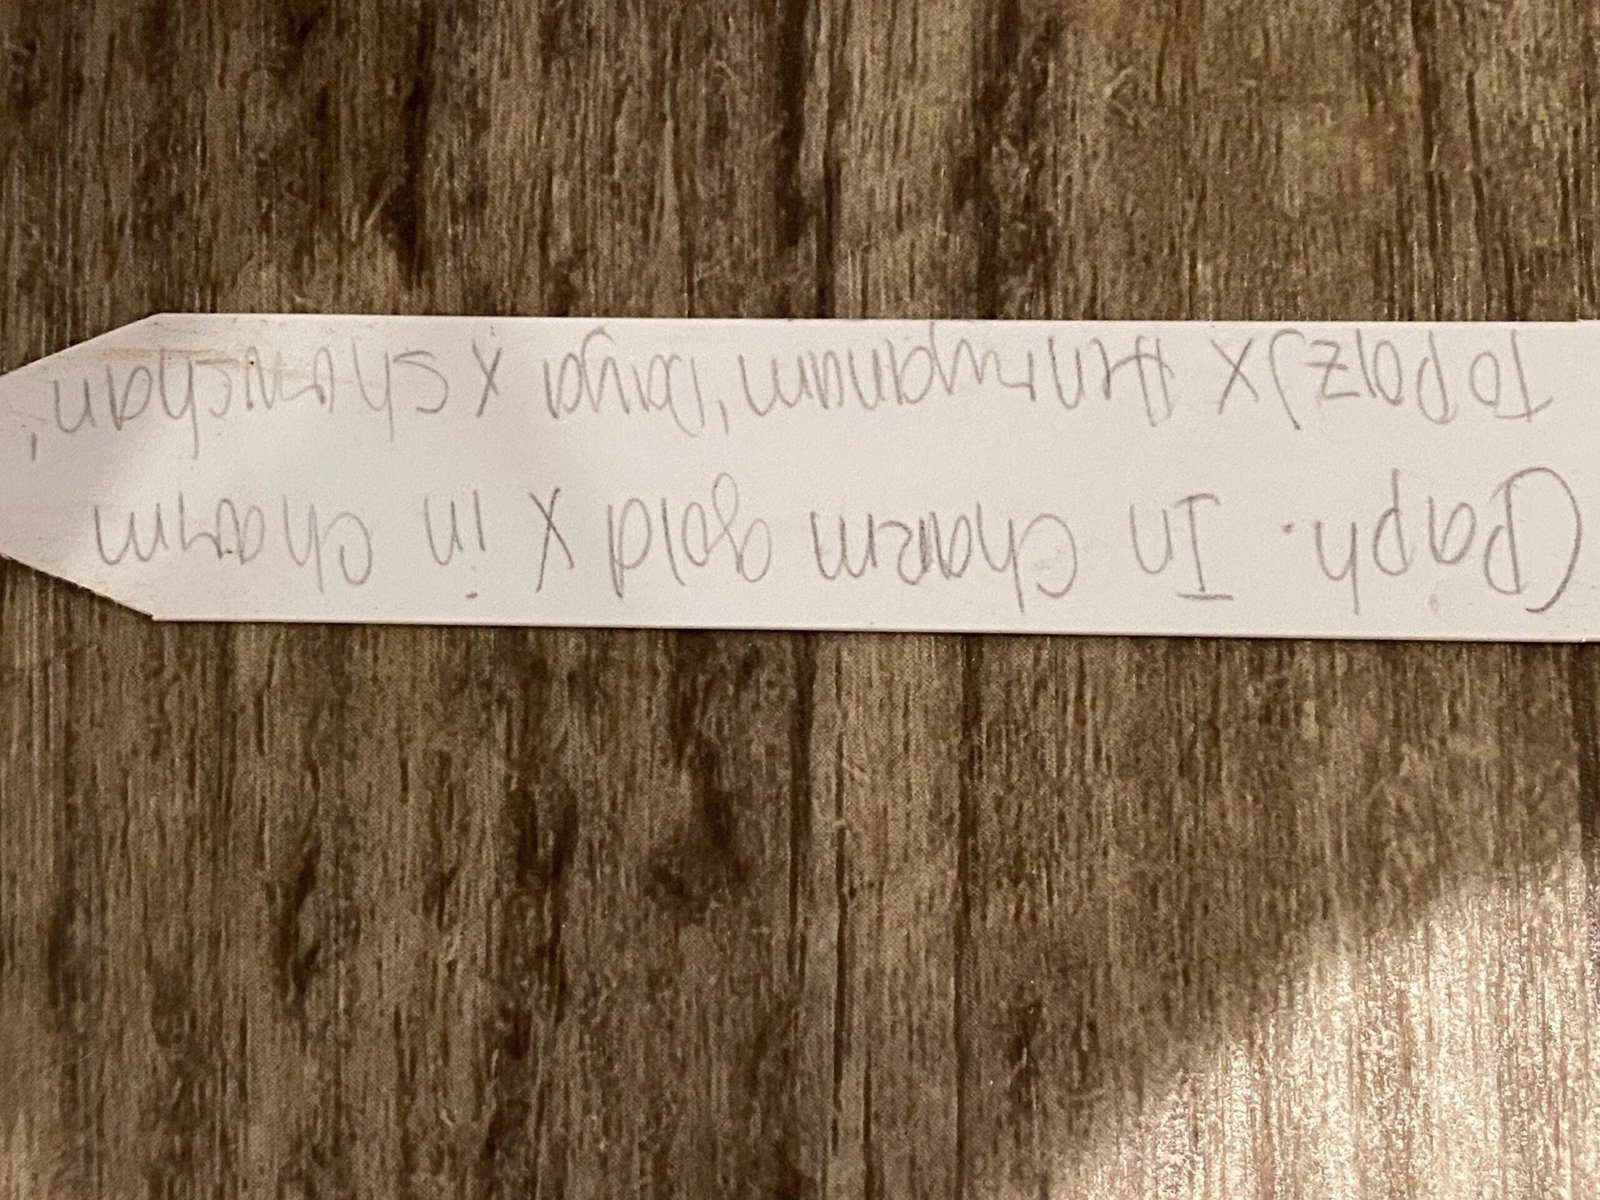 (Paph. In Charm gold x in charm
Topaz) x Henryanum 'Daya x Shunichan'